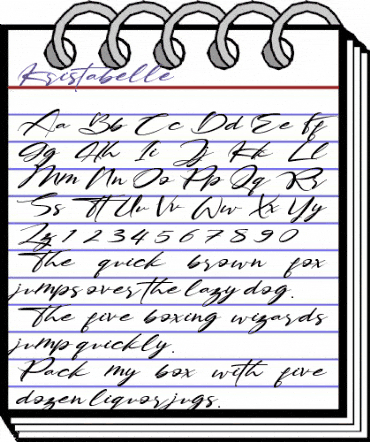 Kristabelle
Aa Bb Cc Dd Ee Ff
Gg Hh Ii Jj Kk Ll
Mm Nn Oo Pp Qq Rr
Ss Tt Uu Vv Ww Xx Yy
Zz 1 2 3 4 5 6 7 8 9 0
The quick brown fox
jumps over the lazy dog.
The five boxing wizards
jump quickly.
Pack my box with five
dozen liquor jugs.